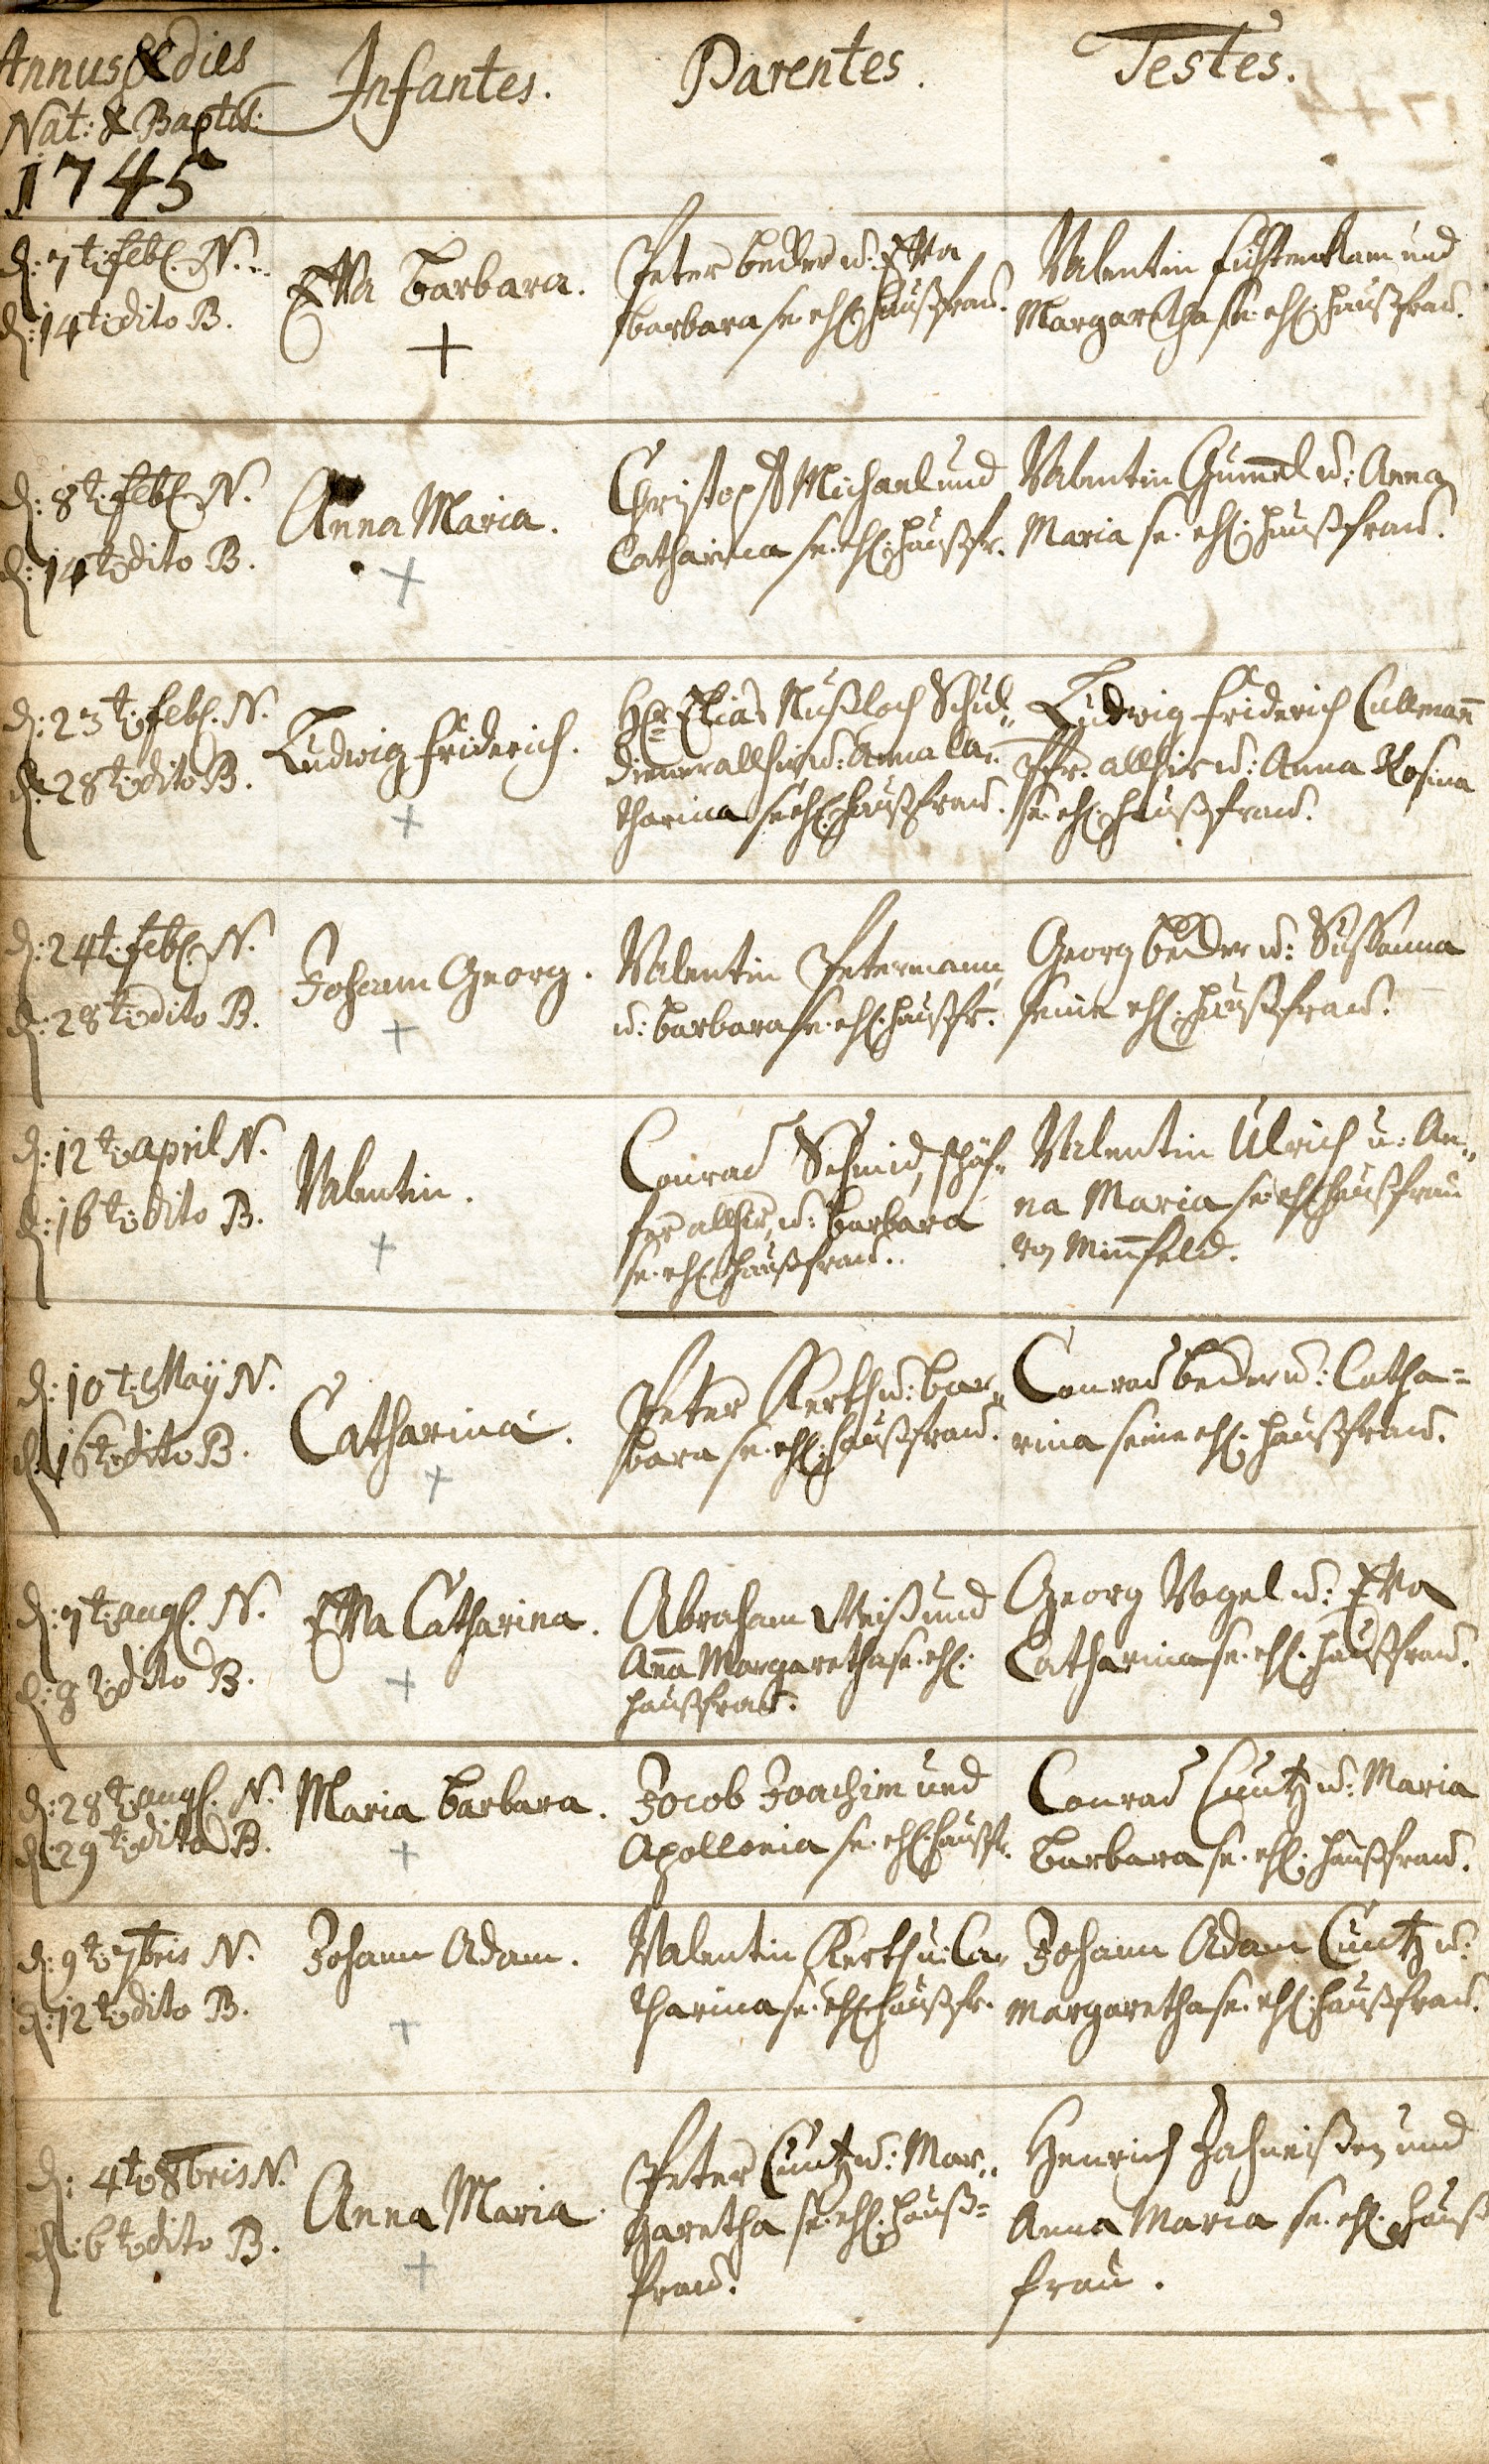 Annus & dies
Nat: & Baptis:
1745
Infantes.
Parentes.
Testes.
d: 7t. feb. N.
d: 14t. dito B.
Eva Barbara.
Peter beder u: Eva
barbara se. ehl. haußfrau.
Valentin und
Margaretha se. ehl. haußfrau.
d: 8t. feb. N.
d: 14t. dito B.
Anna Maria.
Christoph Michael und
Catharina se. ehl. haußfr.
Valentin Gummel u: Anna
Maria se. ehl. haußfrau.
d: 23t. feb. N.
d: 28t. dito B.
Ludwig friderich.
Hr. Elias Nußloch Schul-
diener allhier u: Anna Ca-
tharina se ehl. haußfrau.
Ludwig friderich Cullmann
Pfr. allhier u: Anna Rosina
se. ehl. haußfrau.
d: 24t. feb. N.
d: 28t. dito B.
Johann Georg.
Valentin Petermann
u: barbara se. ehl. haußfr.
Georg beder u: Susanna
seine ehl. haußfrau.
d: 12t. april N.
d: 16t. dito B.
Valentin.
Conrad Schmid, schäf-
fer allhie, u: barbara
se. ehl. haußfrau.
Valentin Ulrich u: An-
na Maria se. ehl. haußfrau
von Minnfeld.
d: 10t. Maij N.
d: 16t. dito B.
Catharina.
Peter Kerth u: bar-
bara se. ehl. haußfrau.
Conrad beder u: Catha=
rina seine ehl. haußfrau.
d: 7t. aug. N.
d: 8t. dito B.
Eva Catharina.
Abraham Weiß und
Anna Margaretha se. ehl.
haußfrau.
Georg Vogel u: Eva
Catharina se. ehl. haußfrau.
d: 28t. aug. N.
d: 29t. dito B.
Maria barbara.
Jacob Joachim und
Apollonia se. ehl. haußfr.
Conrad Cuntz u: Maria
barbara se. ehl. haußfrau.
d: 9t. 7bris N.
d: 12t. dito B.
Johann Adam.
Valentin Kerth u: Ca-
tharina se. ehl. haußfr.
Johann Adam Cuntz u:
Margaretha se. ehl. haußfrau.
d: 4t. 8bris N.
d: 6t. dito B.
Anna Maria.
Peter Cuntz u: Mar-
garetha se. ehl. hauß=
frau.
Henrich und
Anna Maria se. ehl. hauß
frau.